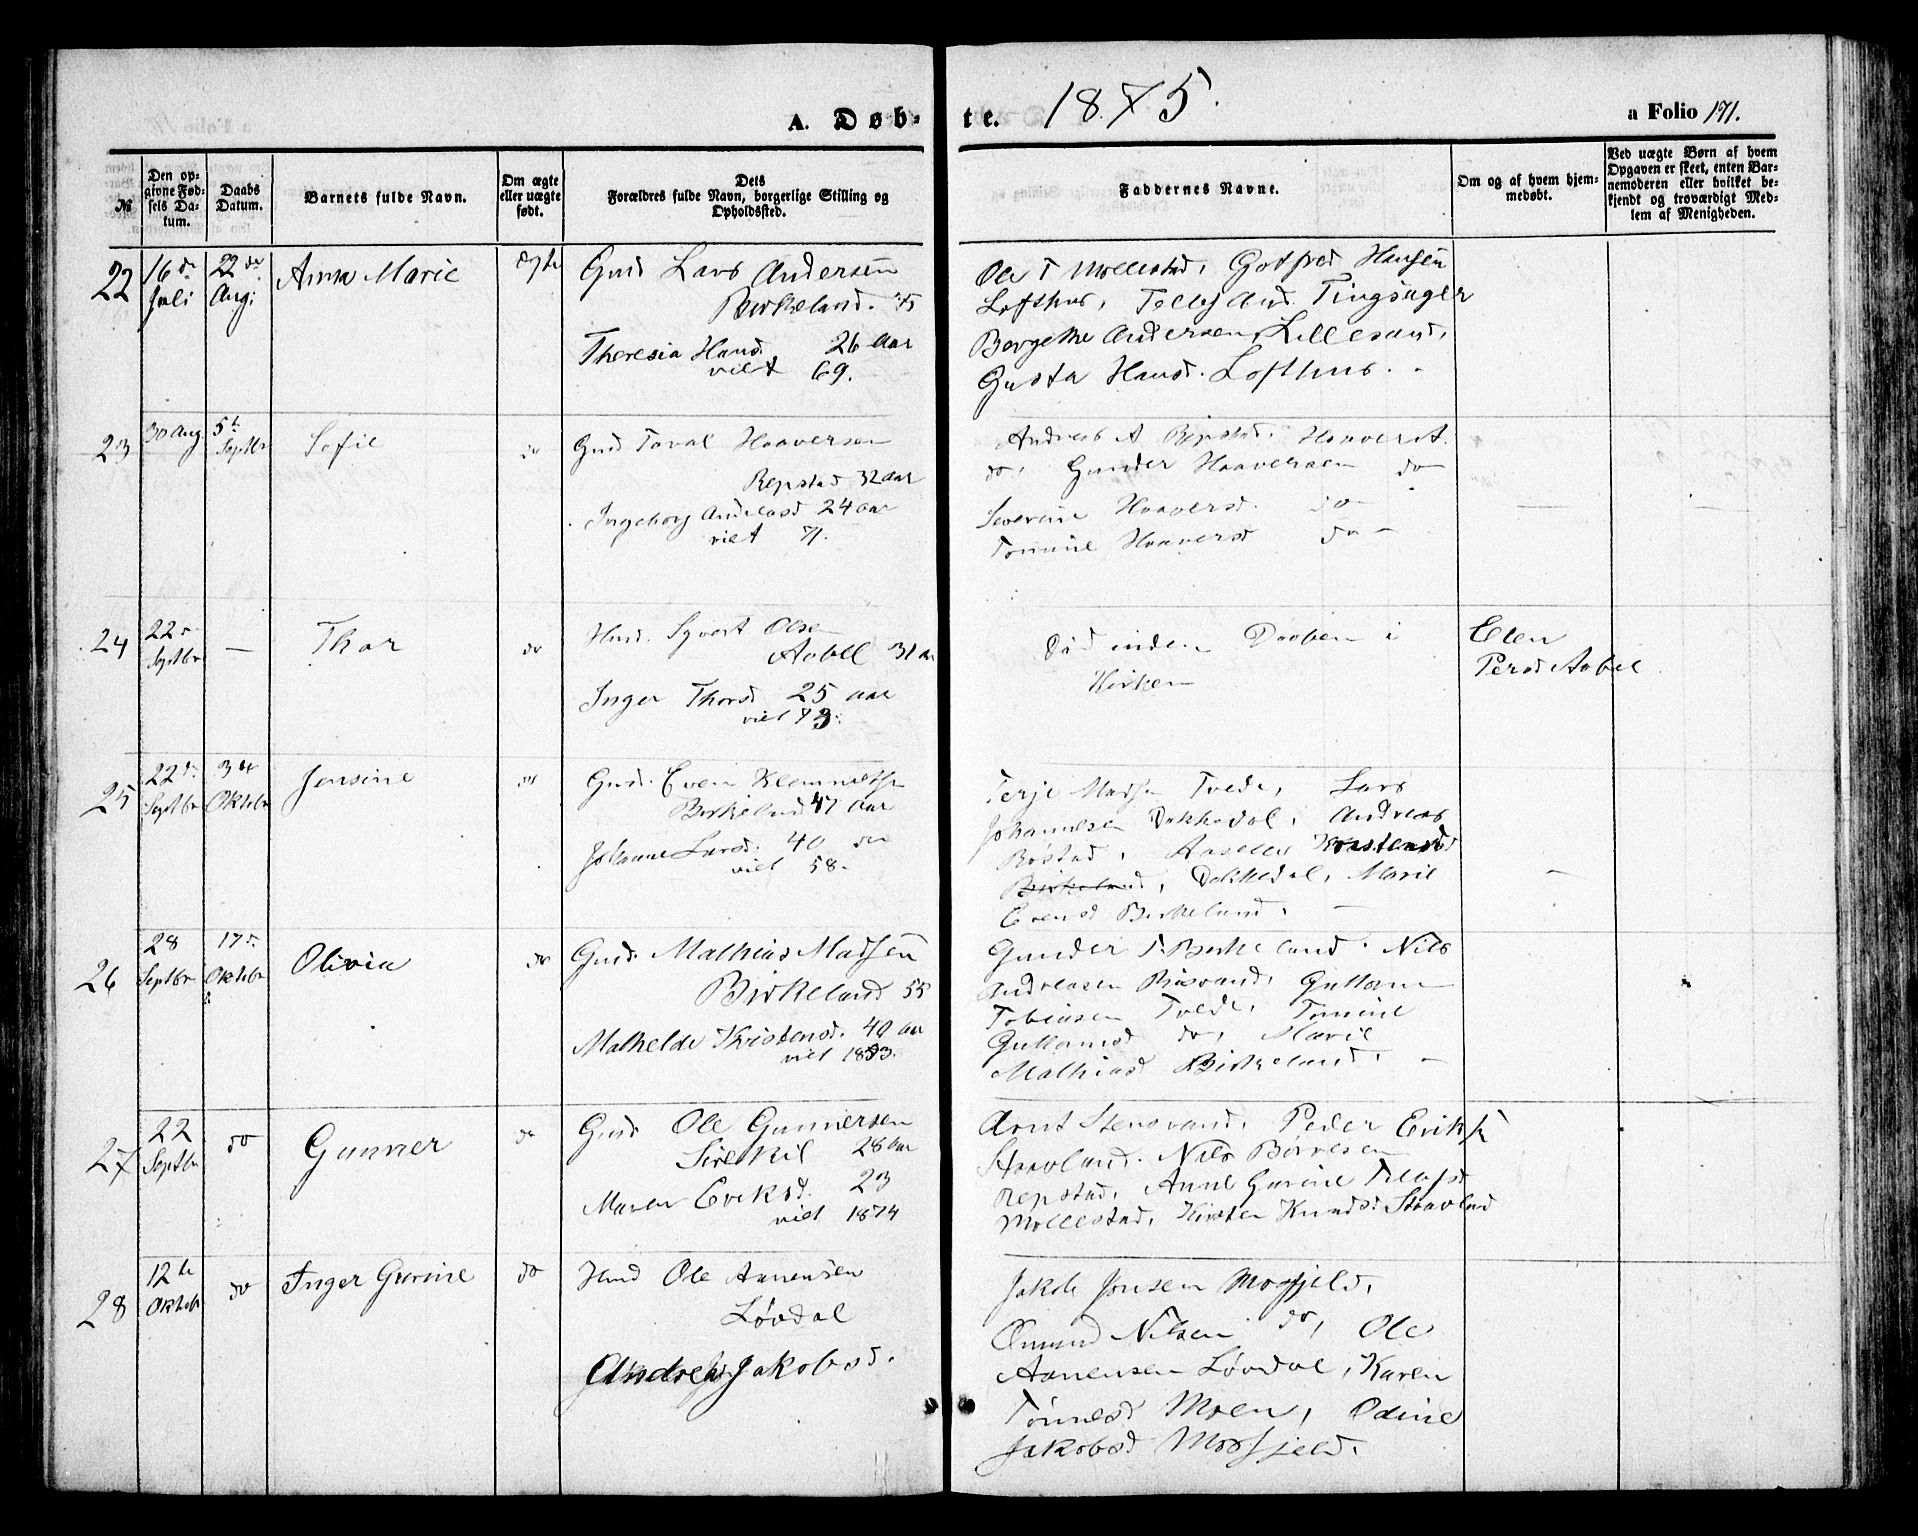 A. Døb-
te.
1875.
a Folio 171.
№
Den op-
givne Fød-
sels Da-
tum.
Daabs
Datum.
Barnets fulde Navn.
Om ægte
eller uægte
født.
Dets
Forældres fulde Navn, borgerlige Stilling og
Opholdssted.
Faddernes Navne.
Om og af hvem hjem-
medøbt.
Ved uægte Børn af hvem
Opgaven er skeet, enten Bar-
nemoderen eller hvilket be-
kjendt og troværdigt Med-
lem af Menigheden.
22
16 d.
Juli
22 de
Aug:
Anna Marie
ægte
Gmd Lars Andersen
Birkeland.
Theresia Hansd. 26 Aar
viet 69.
Ole T Mollestad, Gotfred Hansen
Lofthus, Tingsager
Andersen, Lillesand,
Gusta Hansd. Lofthus.
23
30 Aug.
5 t.
Septbr
Sofie
do
Gmd Haaversen
Repstad 32 aar
Ingeborg Andreasd 24 aar
viet 71.
Andreas A Repstad, Haaver A.
do, Gunder Haaversen do
Severine Haaversd. do
Tomine Haaversd do
24
22
Septbr
—
Thor
do
Hmd. Syvert Olsen
Aabel 31 a
Inger Thorsd 25 aar
viet 73.
Død inden Daaben i
Kirken
Elen
Persd Aabel
25
22 d.
Septbr
3 die
Oktobr
Jensine
do
Gmd. Even Klemmetsen
Birkeland 47 Aar
Johanne Larsd. 40 do
viet 58.
Terje Madsen Tvede, Lars
Johannesen Dokkedal, Andreas
Røstad,
Birkeland, Dokkedal, Marie
Evensd Birkeland,
26
28
Septbr
17 d.
Oktobr
Olivia
do
Gmd. Mathias Madsen
Birkeland 55
Mathelde Kristensd. 40 aar
viet
Gunder T. Birkeland. Nils
Andreasen Risvand, Guttorm
Tobiasen Tvede, Tomine
Guttormsd do, Marie
Mathiasd Birkeland.
27
22
Septbr
do
Gunner
do
Gmd Ole Gunnersen
Sirekil 28 aar
Maren Eriksd. 23
viet 1874
Arnt Stensvand, Peder Eriks.
Stavland. Nils Børresen
Repstad, Anne Gurine
Mollestad, Kirsten Knudsd Stavland
28
12 te
Oktobr
do
Inger Gurine
do
Hmd Ole Aanensen
Løvdal
Andrea Jakobsd.
Jakob Jensen Mosfjeld,
Omund Nilsen do, Ole
Aanensen Løvdal, Karen
Tønnesd Moen, Odine
Jakobsd Mosfjeld.